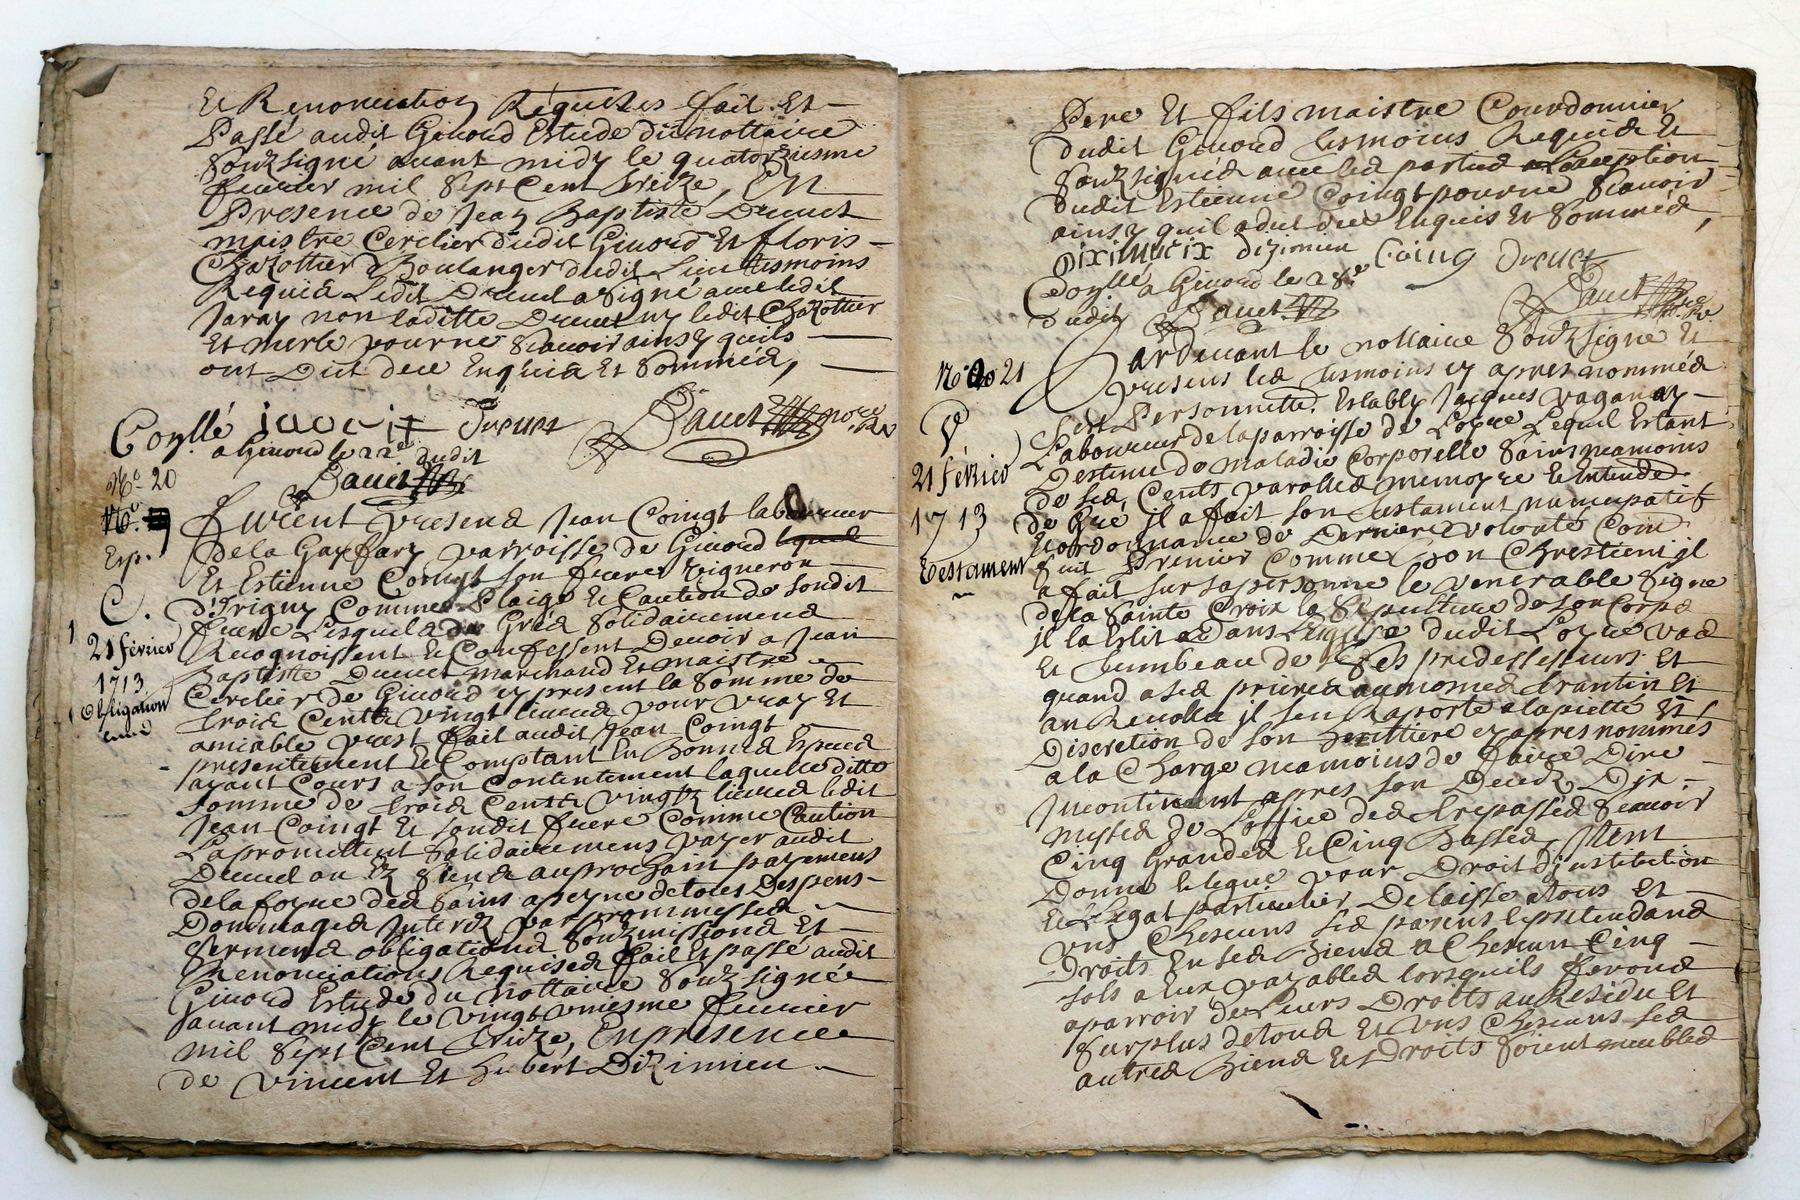 Et Renonciation Requises fait Et
Passé audit Givord Estude du nottaire
Soubzsigné avant midy le quatorziesme
fevrier mil Sept Cent treize, En
Presence de Jean Baptiste Drevet
maistre Cerclier dudit Givord Et floris
Chazottier Boulanger dudit Lieu tesmoins
Requis Ledit Drevet a signé avec ledit
Jaray non laditte Drevet ny ledit Chazottier
Et merle pour ne Scavoir ainsy quils
ont Dict de ce Enquis Et Sommés,
Drevet
Conllé a Givord le 22e dudit
No. 20
No.
furent Presens Jean Coingt laboureur
de la parroisse de Givord
Et Estienne Coingt son frere vigneron
d'Irigny Comme Plaige Et Caution de Sondit
frere Lesquels de Grés Solidairement
Recognoissent Et Confessent Devoir a Jean
Baptiste Drevet marchand Et maistre
Cerclier de Givord cy present la Somme de
trois Cents vingt livres pour vray Et
amiable prest fait audit Jean Coingt
presentement Et Comptant En Bonnes Especes
ayant Cours a son Contentement laquelle ditte
Somme de trois Cents vingt livres ledit
Jean Coingt Et sondit frere Comme Caution
La promettent Solidairement payer audit
Drevet ou Es Siens au prochain payement
de la foyre des Saints a peyne de tous Despens
Dommages Interests par promesses
Serments obligations Soubzmissions Et
Renonciations Requises fait Et passé audit
Givord Estude du nottaire Soubzsigné
avant midy le vingt uniesme fevrier
mil Sept Cent treize, En presence
de Vincent Et hubert Dizimieu
Exp.
C.
1
21 février
1713
obligation
Pere Et fils maistre Courdonnier
dudit Givord tesmoins Requis Et
Soubzsignés avec les parties a L'exception
dudit Estienne Coingt pour ne Scavoir
ainsy quil a dit de ce Enquis Et Sommés,
dizimieu Coing Drevet
Conllé a Givord le 28e
dudit
No. 21
V
21 février
1713
Testament
Pardevant le nottaire Soubzsigné Et
presens les tesmoins cy apres nommés
Sest Personnellt. Estably Jacques vaganay
Laboureur de la parroisse de Loyre Lequel Estant
Destenu de maladie Corporelle Sains neamoins
de ses Cents parolles memoyre Et Entendt.
de Gré il a fait Son testament nuncupatif
Et ordonnance de Derniere volonté Com
Suit Premier Comme bon Chrestient il
a fait sur sa personne le venerable Signe
de la Sainte Croix la Sepulture de son Corps
il la Eslit dans L'Eglise dudit Loyre vas
Et tumbeau de Ses predessesseurs Et
quand a ses prieres aumosnes trantin Et
an Revolu il sen Raporte a la pieté Et
Discretion de son heritiere cy apres nommés
a la Charge neamoins de faire Dire
Incontinent apres Son Deces Dix
messes de L'office des trepassés Scavoir
Cinq Grandes Et Cinq Basses, Item
Donne Et legue pour Droit d'institution
Et Legat particulier Delaisse a tous Et
uns Chescuns ses parens Et pretendans
Droits En ses Biens a Chescun Cinq
sols a Eux payables lorsquils feront
aparroir de Leurs Droits au Residu Et
Surplus de tous Et uns Chescuns ses
autres Biens Et Droits Soient meubles